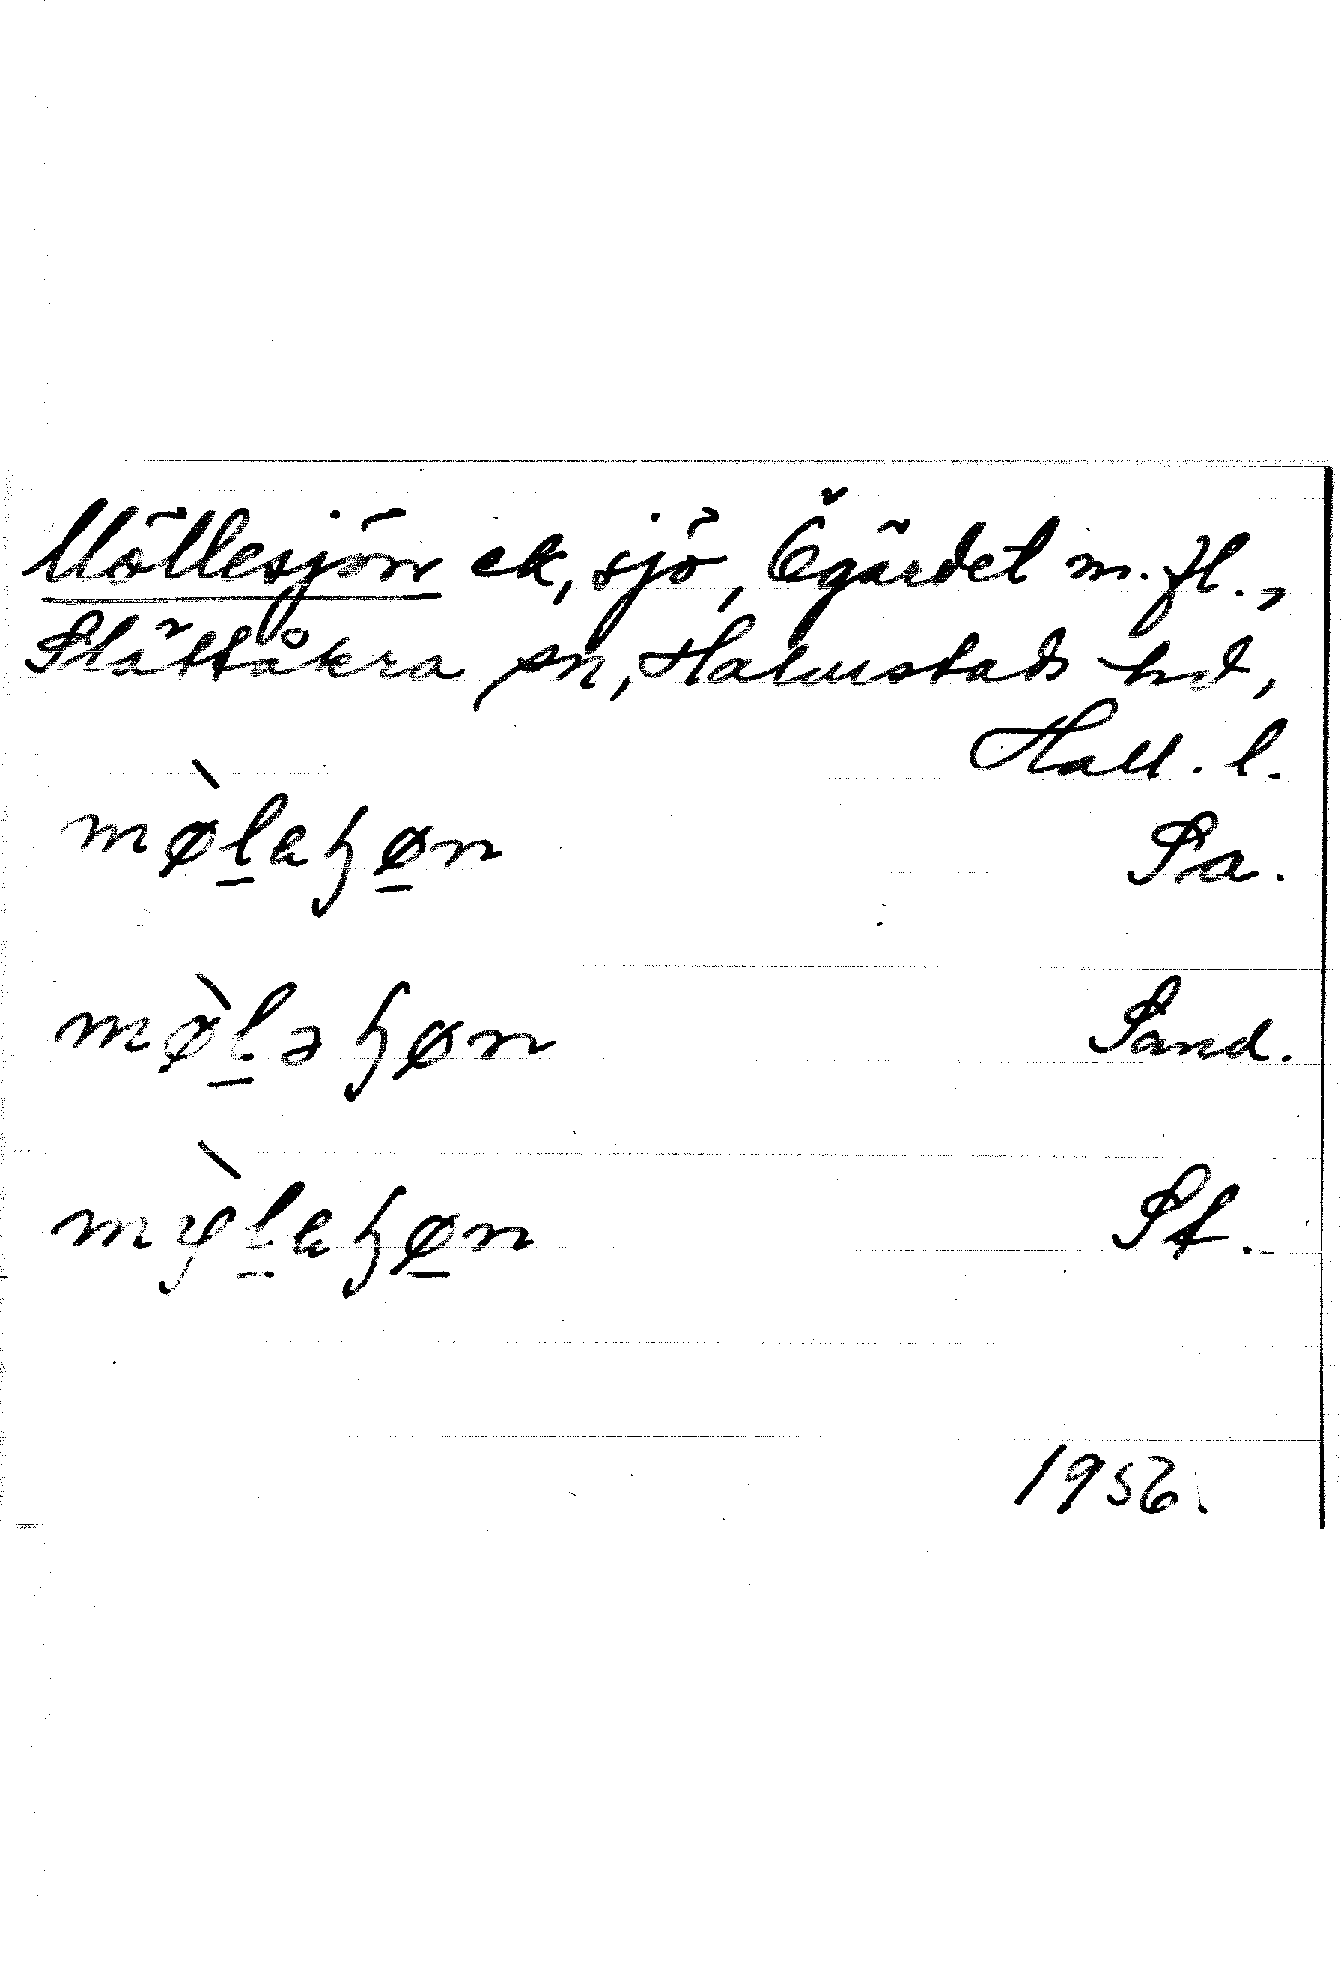 Möllesjön ek, sjö, Ögärdet m. fl.,
Slättåkra sn, Halmstads hd,
Hall. l.
mø̀laɧøn Sa.
mø̀ləɧøn Sand.
mỳlaɧøn St.
1956.